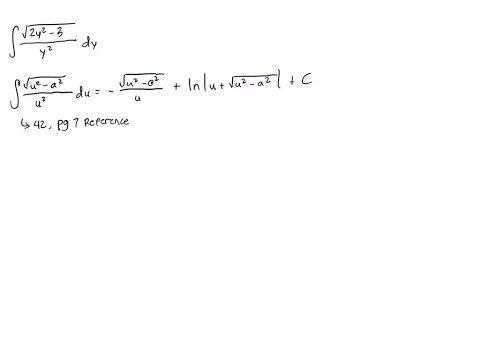 ∫ √(2y² - 3) / y² dy
∫ √(u² - a²) / u² du = - √(u² - a²) / u + ln|u + √(u² - a²)| + C
↳ 42, pg 7 Reference